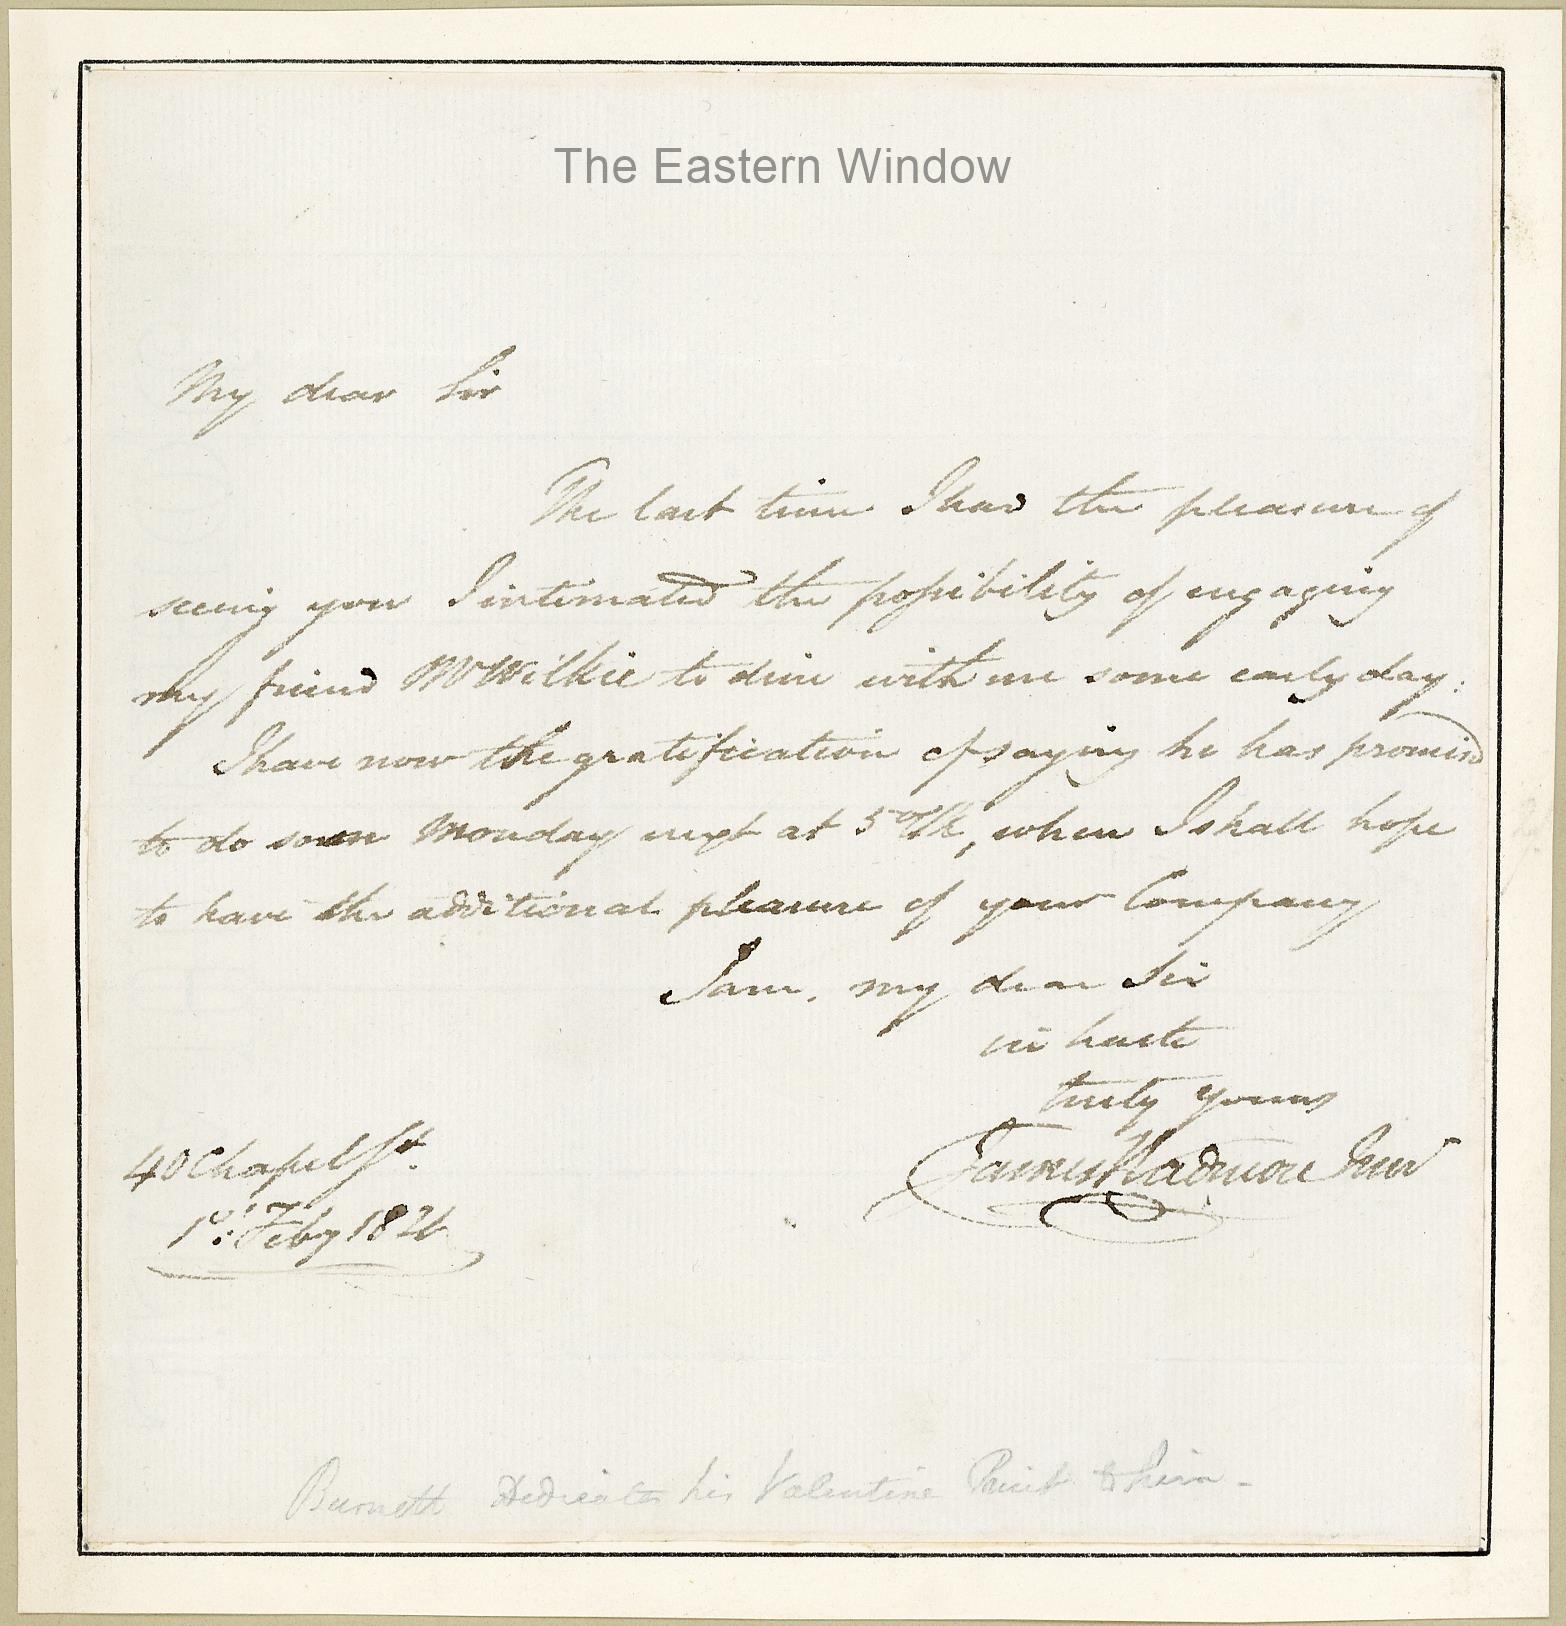 The Eastern Window
My dear Sir
The last time I had the pleasure of
seeing you I intimated the possibility of engaging
my friend Mr Wilkie to dine with me some early day:
I have now the gratification of saying he has promised
to do so on Monday next at 5 o'Clk, when I shall hope
to have the additional pleasure of your Company
I am, my dear Sir
in haste
truly yours
James Wadmore Junr
40 Chapel St.
1st Feby 1826
Burnett Dedicates his Valentine Print to him -